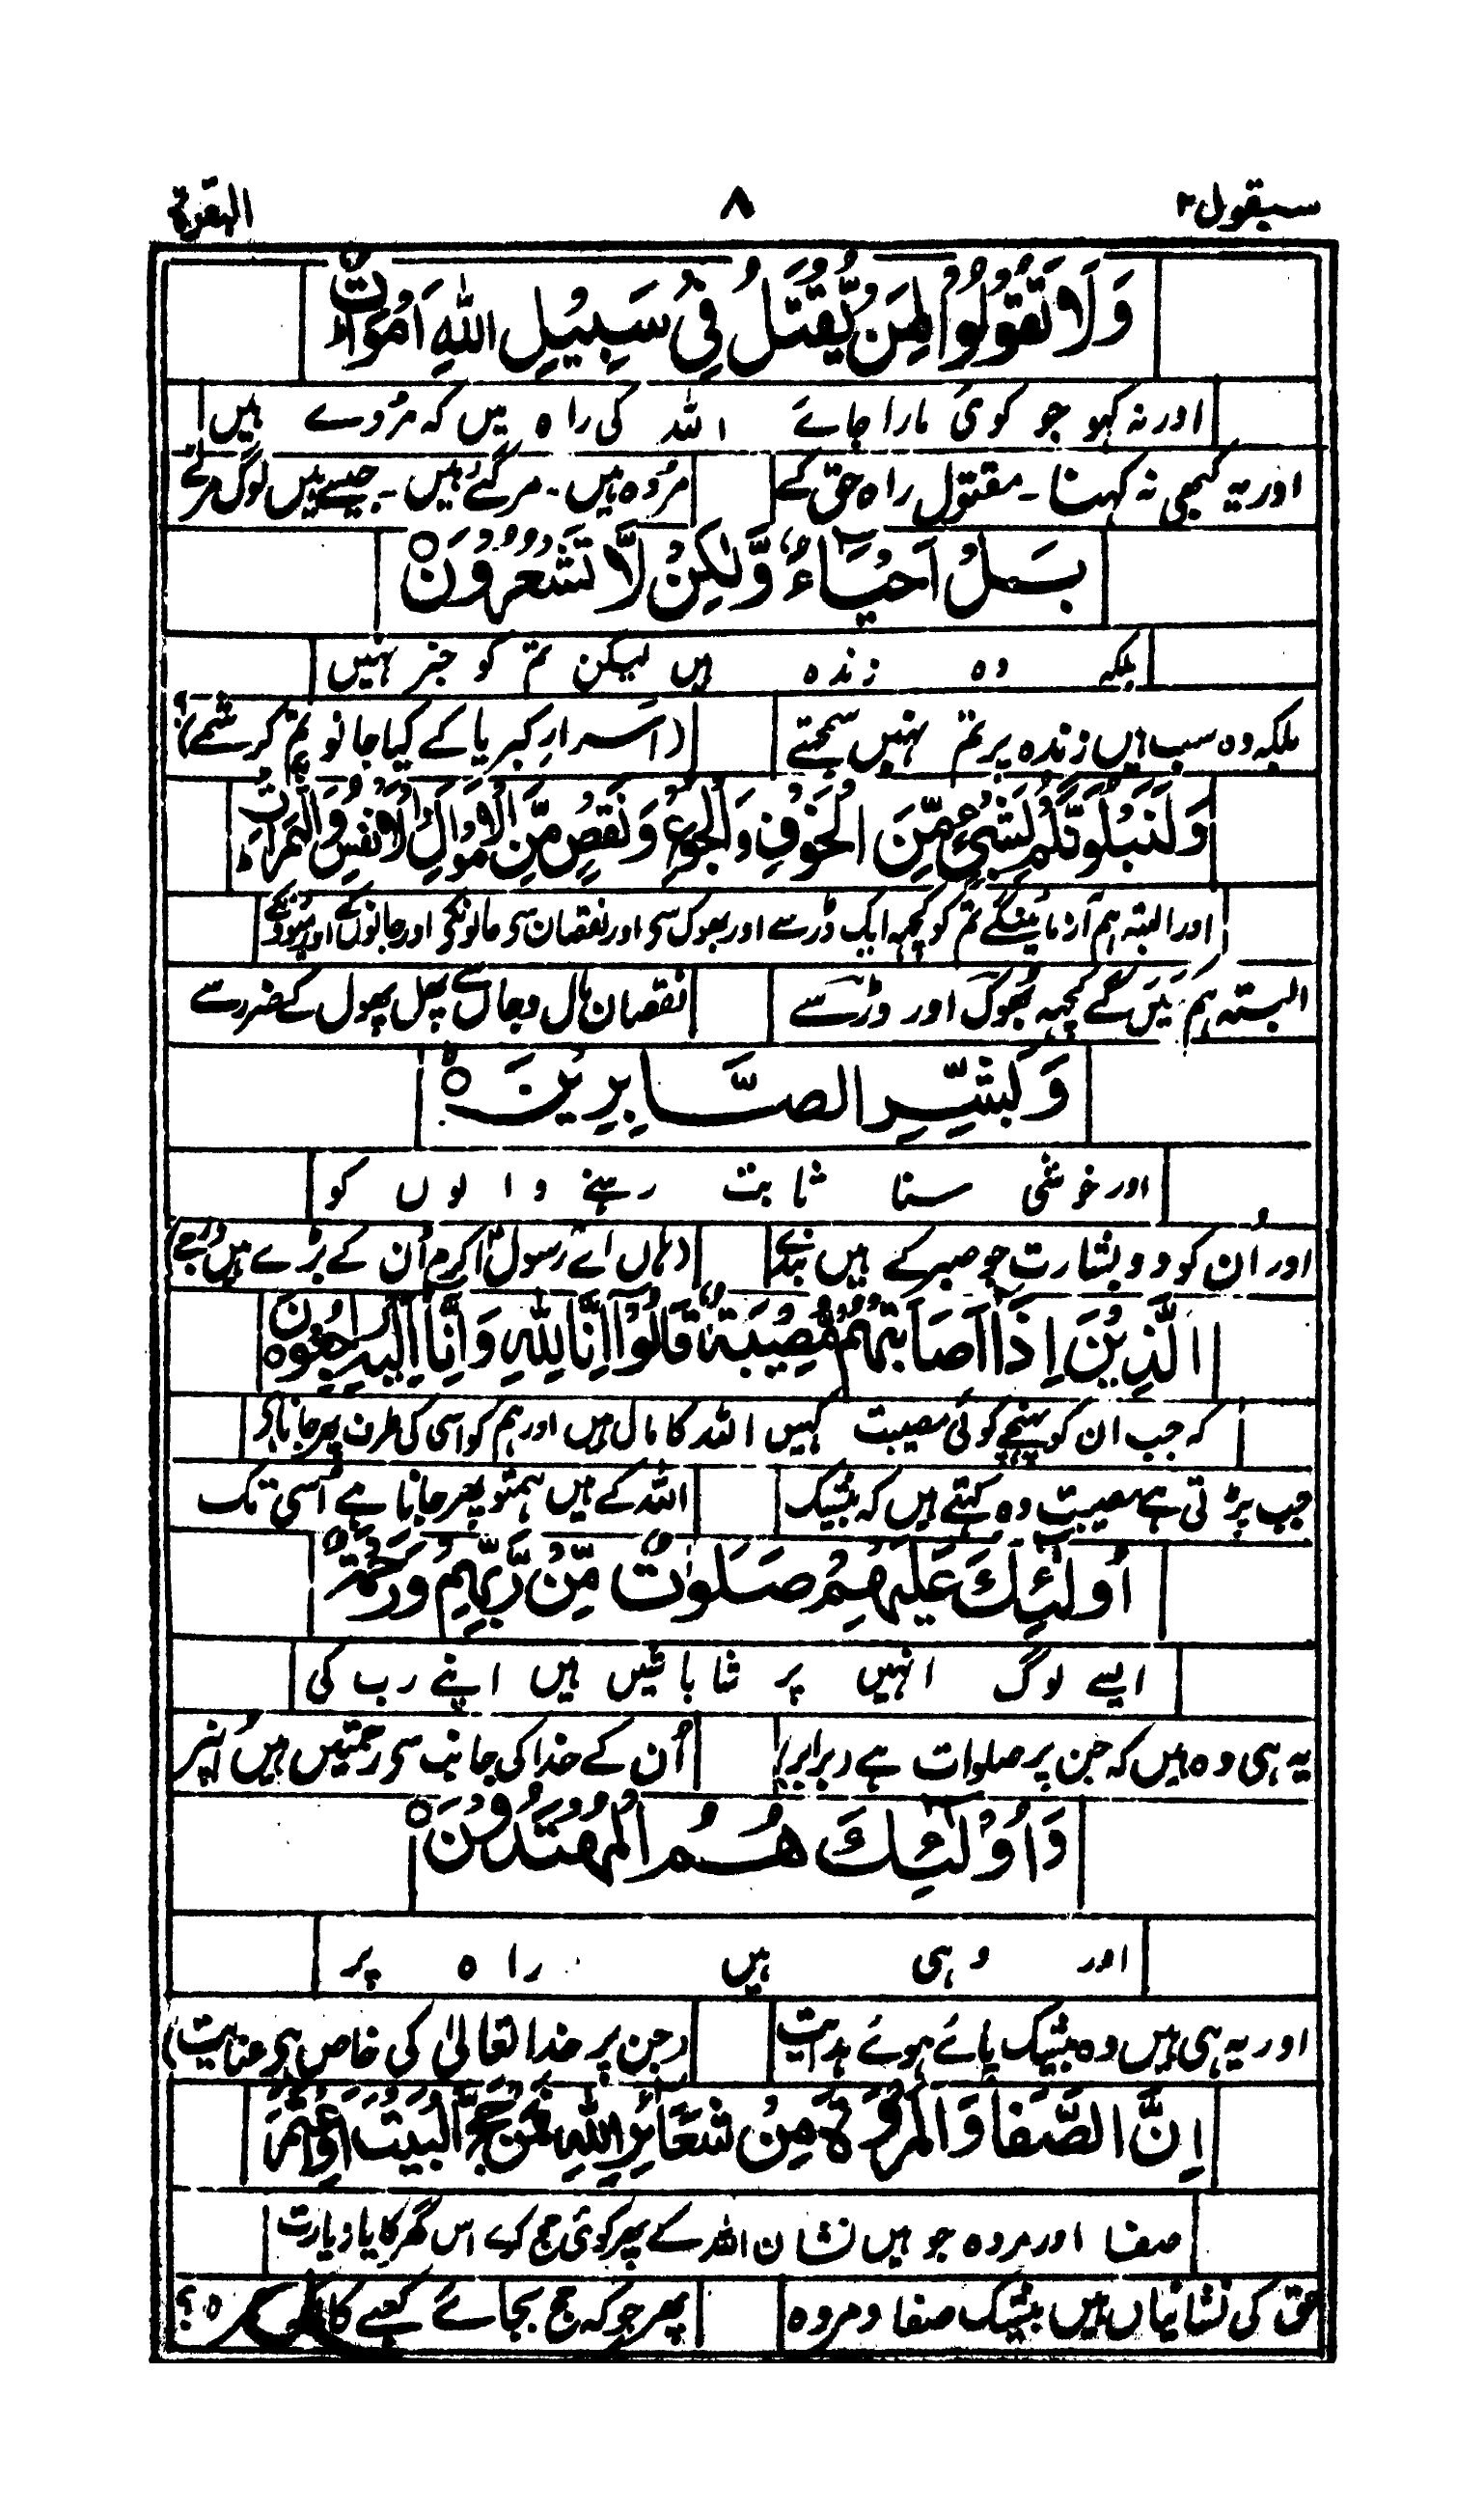 سیقول ۲ ۸ البقرة
وَلَا تَقُوْلُوْا لِمَنْ يُّقْتَلُ فِيْ سَبِيْلِ اللّٰهِ اَمْوَاتٌ
اور نہ کہو جو کوئی مارا جائے اللہ کی راہ میں کہ مردے ہیں
اور یہ کبھی نہ کہنا ۔ مقتول راہ حق کے مردہ ہیں ۔ مر گئے ہیں ۔ جیسے ہیں لوگ مرتے
بَلْ اَحْيَاءٌ وَّلٰكِنْ لَّا تَشْعُرُوْنَ
بلکہ وہ زندہ ہیں لیکن تم کو خبر نہیں
بلکہ وہ سب ہیں زندہ پر تم نہیں سمجھتے (اسرارِ کبریا کے کیا جانو تم کرشمے)؟
وَلَنَبْلُوَنَّكُمْ بِشَيْءٍ مِّنَ الْخَوْفِ وَالْجُوْعِ وَنَقْصٍ مِّنَ الْاَمْوَالِ وَالْاَنْفُسِ وَالثَّمَرَاتِ
اور البتہ ہم آزمائینگے تم کو کچھ ایک ڈر سے اور بھوک سی اور نقصان سی مالونکی اور جانونکی اور میوونکے
البتہ ہم کے کچھ بھوک اور ڈر سے نقصان مال و جاں سے پھل پھول کے ضرر سے
وَبَشِّرِ الصَّابِرِيْنَ
اور خوشی سنا ثابت رہنے والوں کو
اور اُن کو دو بشارت جو صبر کے ہیں بندے (ہاں اے رسول اکرم اُن کے بڑے ہیں درجے)
الَّذِيْنَ اِذَا اَصَابَتْهُمْ مُّصِيْبَةٌ قَالُوْا اِنَّا لِلّٰهِ وَاِنَّا اِلَيْهِ رَاجِعُوْنَ
کہ جب ان کو پہنچے کوئی مصیبت کہیں اللہ کا مال ہیں اور ہم کو اسی کی طرف پھر جانا ہی
جب پڑتی ہے مصیبت وہ کہتے ہیں کہ بیشک اللہ کے ہیں ہمتو پھر جانا ہے اُسی تک
اُولٰئِكَ عَلَيْهِمْ صَلَوٰتٌ مِّنْ رَّبِّهِمْ وَرَحْمَةٌ
ایسے لوگ انہیں پر شاباشیں ہیں اپنے رب کی
یہ ہی وہ ہیں کہ جن پر صلوات ہے (برابر) اُن کے خدا کی جانب سی رحمتیں ہیں اُنپر
وَاُولٰئِكَ هُمُ الْمُهْتَدُوْنَ
اور وہی ہیں راہ پر
اور یہ ہی ہیں وہ بیشک پائے ہوئے ہدایت (جن پر خدا تعالیٰ کی خاص ہی عنایت)
اِنَّ الصَّفَا وَالْمَرْوَةَ مِنْ شَعَائِرِ اللّٰهِ فَمَنْ حَجَّ الْبَيْتَ اَوِ اعْتَمَرَ
صفا اور مروہ جو ہیں نشان اللہ کے پھر کوئی حج کرے اس گھر کا یا زیارت
حق کی نشانیاں ہیں بیشک صفا و مروہ پھر جو کہ حج بجائے کعبے کا